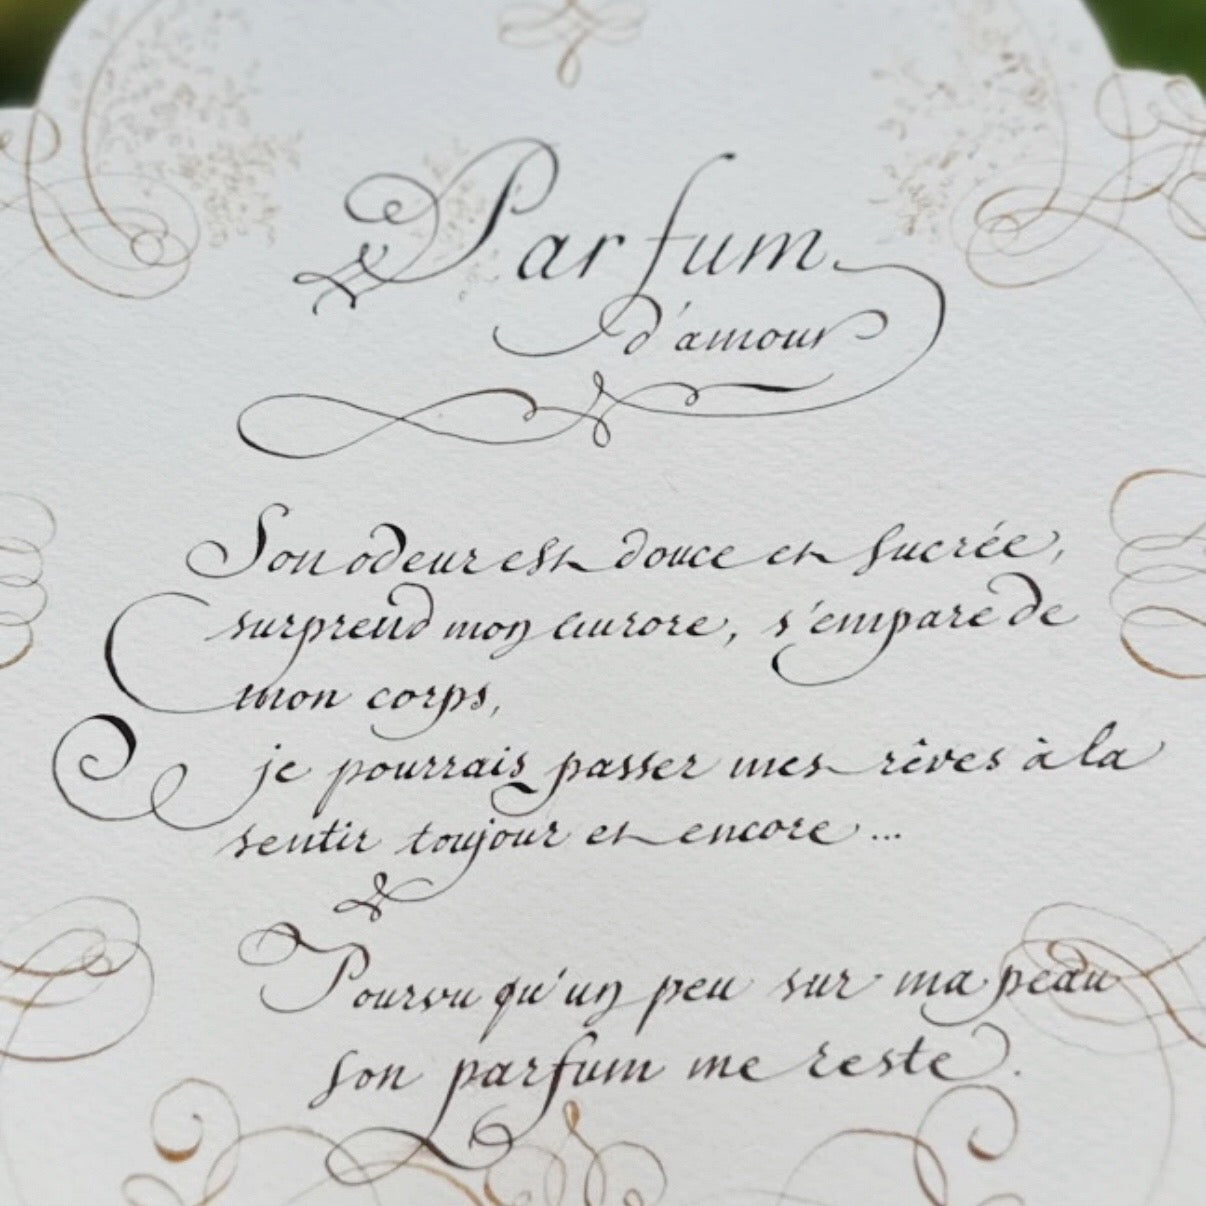 Parfum
d'amour
Son odeur est douce et sucrée,
surprend mon aurore, s'empare de
mon corps,
je pourrais passer mes rêves à la
sentir toujour et encore...
Pourvu qu'un peu sur ma peau
son parfum me reste.